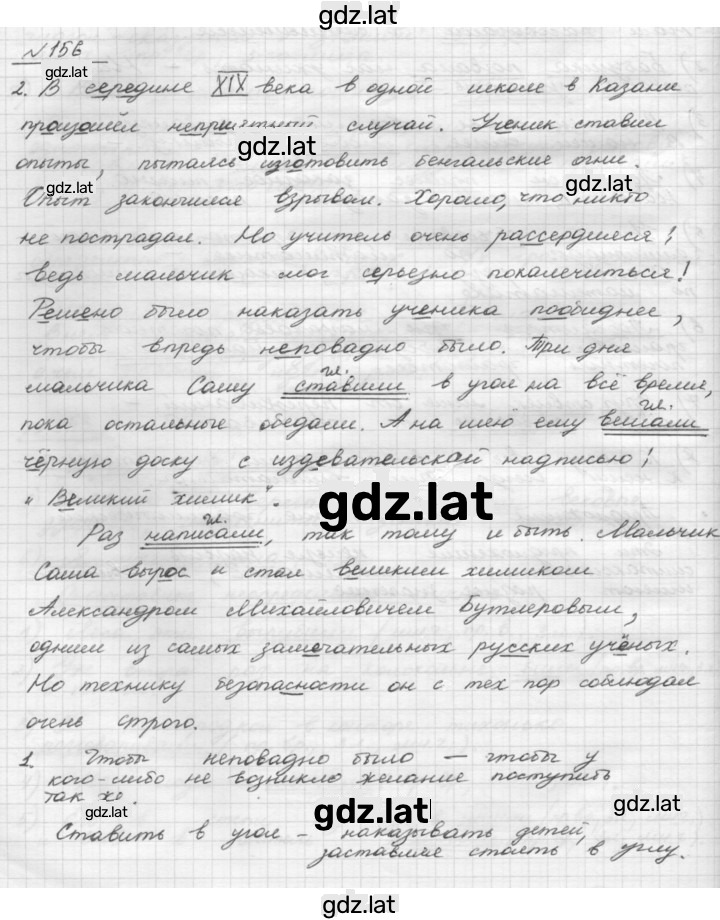 gdz.lat
№ 156
gdz.lat
2. В середине XIX века в одной школе в Казани
произошёл неприятный случай. Ученик ставил
gdz.lat
опыты, пытаясь изготовить бенгальские огни.
gdz.lat
gdz.lat
Опыт закончился взрывом. Хорошо, что никто
не пострадал. Но учитель очень рассердился:
ведь мальчик мог серьезно покалечиться!
Решено было наказать ученика пообиднее,
чтобы впредь неповадно было. Три дня
гл.
мальчика Сашу ставили в угол на всё время,
гл.
пока остальные обедали. А на шею ему вешали
чёрную доску с издевательской надписью:
"Великий химик".
gdz.lat
гл.
Раз написали, так тому и быть. Мальчик
Саша вырос и стал великим химиком
Александром Михайловичем Бутлеровым,
одним из самых замечательных русских учёных.
Но технику безопасности он с тех пор соблюдал
очень строго.
1. Чтобы неповадно было – чтобы у
кого-либо не возникло желание поступить
так же.
gdz.lat
gdz.lat
gdz.lat
Ставить в угол – наказывать детей,
заставляя стоять в углу.
gdz.lat